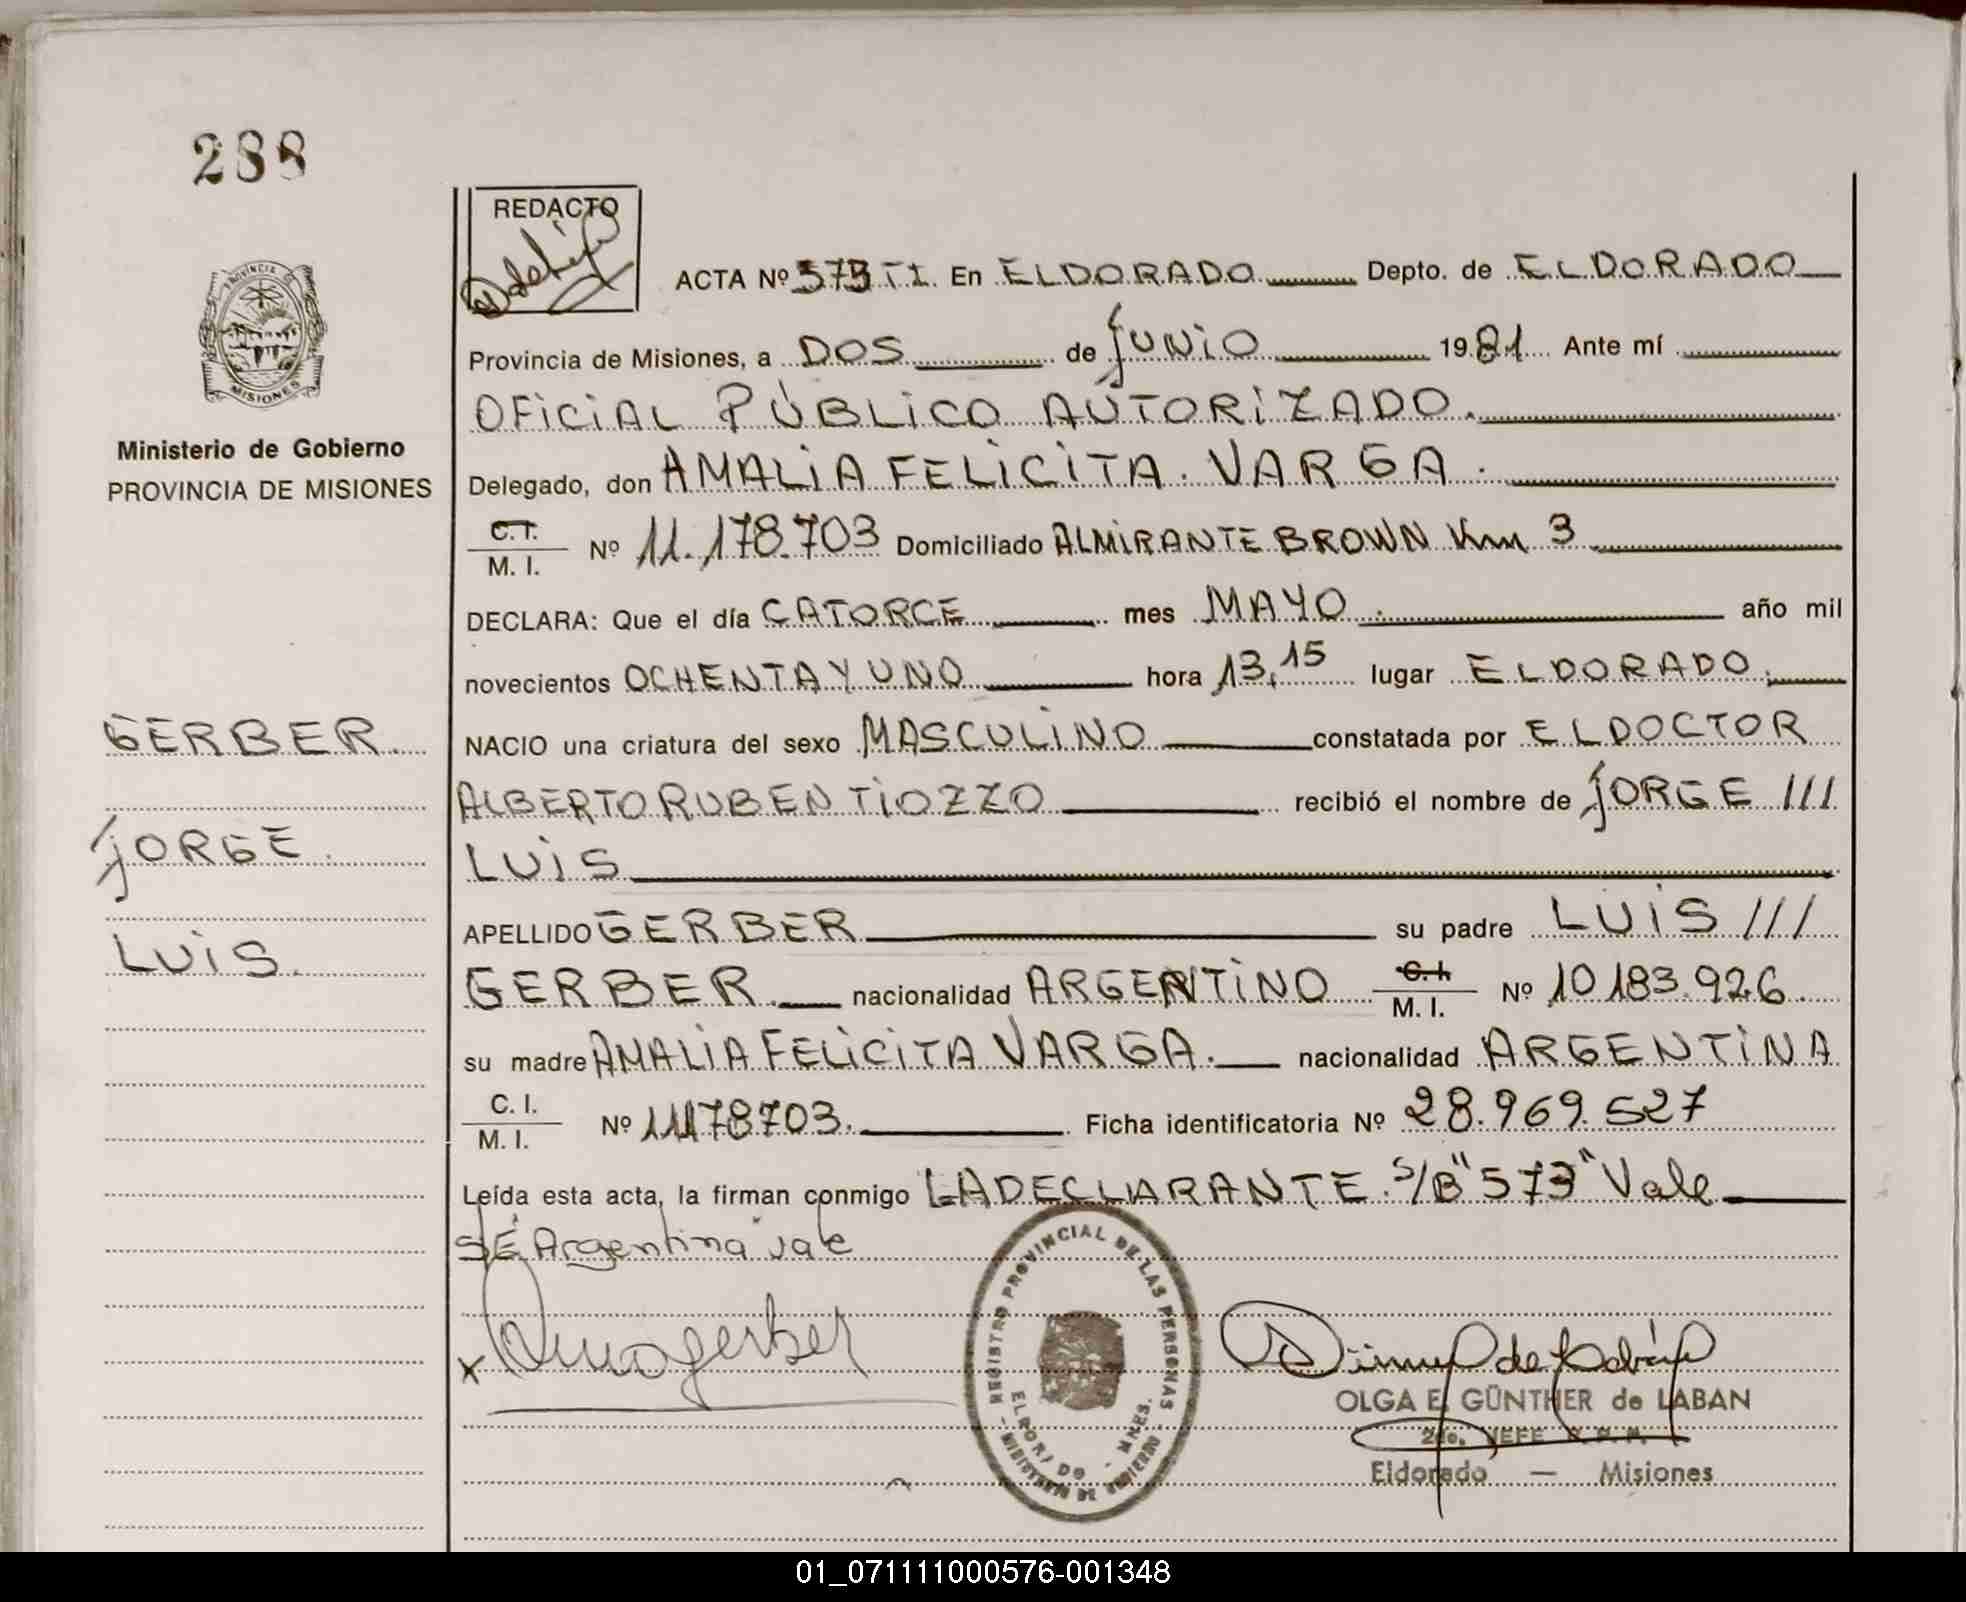 288
REDACTO
ACTA Nº 573 TI. En ELDORADO Depto. de ELDORADO
Provincia de Misiones, a DOS de JUNIO 1981 Ante mí
OFICIAL PÚBLICO AUTORIZADO.
Delegado, don AMALIA FELICITA VARGA.
C.I. M. I. Nº 11.178.703 Domiciliado ALMIRANTE BROWN Km 3
DECLARA: Que el día CATORCE mes MAYO. año mil
novecientos OCHENTA Y UNO hora 13,15 lugar ELDORADO.
NACIO una criatura del sexo MASCULINO constatada por EL DOCTOR
ALBERTO RUBEN TIOZZO recibió el nombre de JORGE ///
LUIS
APELLIDO GERBER su padre LUIS ///
GERBER. nacionalidad ARGENTINO C.I. M. I. Nº 10.183.926
su madre AMALIA FELICITA VARGA. nacionalidad ARGENTINA
C. I. M. I. Nº 11178703. Ficha identificatoria Nº 28.969.527
Leída esta acta, la firman conmigo LA DECLARANTE. S/B "573" Vale
S/E Argentina vale
PROVINCIA DE MISIONES
Ministerio de Gobierno
PROVINCIA DE MISIONES
GERBER.
JORGE.
LUIS.
REGISTRO PROVINCIAL DE LAS PERSONAS
MINISTERIO DE GOBIERNO
ELDORADO - MNES.
OLGA E. GÜNTHER de LABAN
2do. JEFE R. P. P.
Eldorado — Misiones
01_071111000576-001348